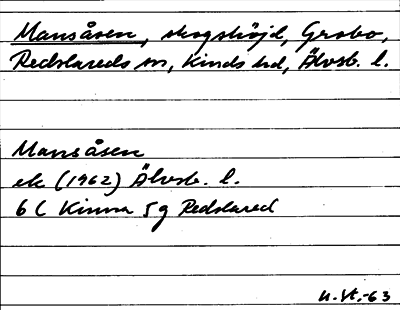 Mansåsen, skogshöjd, Grebo,
Redslareds sn, Kinds hd, Älvsb. l.
Mansåsen
ek (1962) Älvsb. l.
6 C Kinna 5 g Redslared
U.Vt.-63